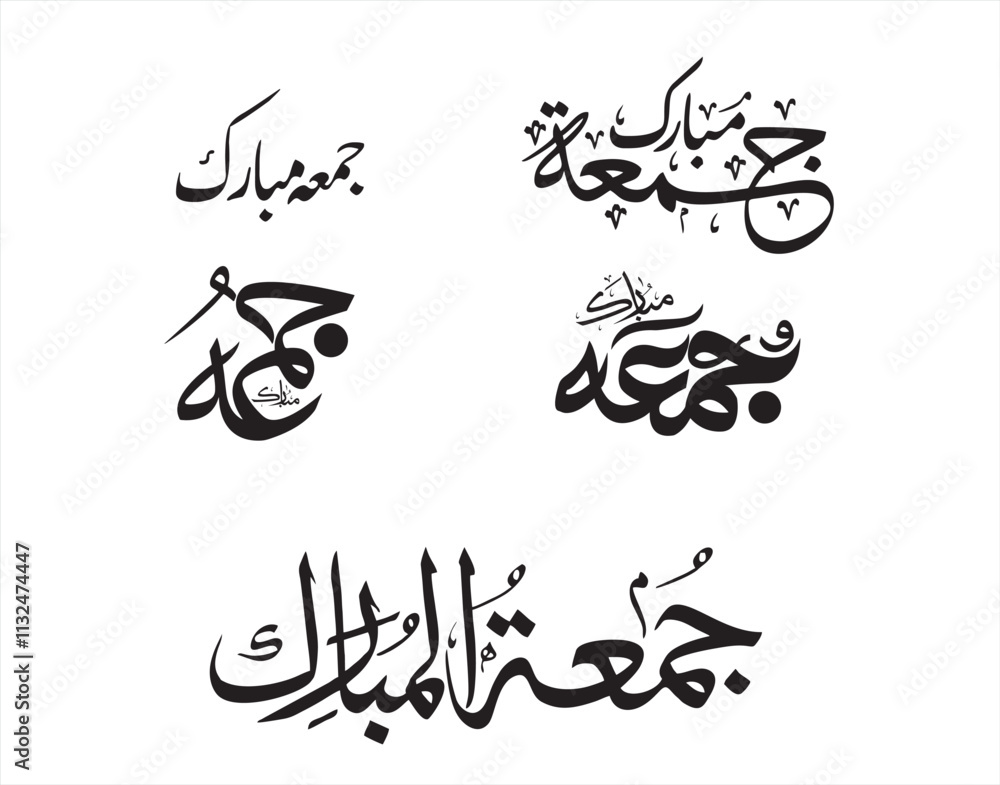 جمعه مبارک
جمعة مبارک
جمعه مبارک
جمعه مبارک
جمعةُ المبارك
Adobe Stock | #1132474447